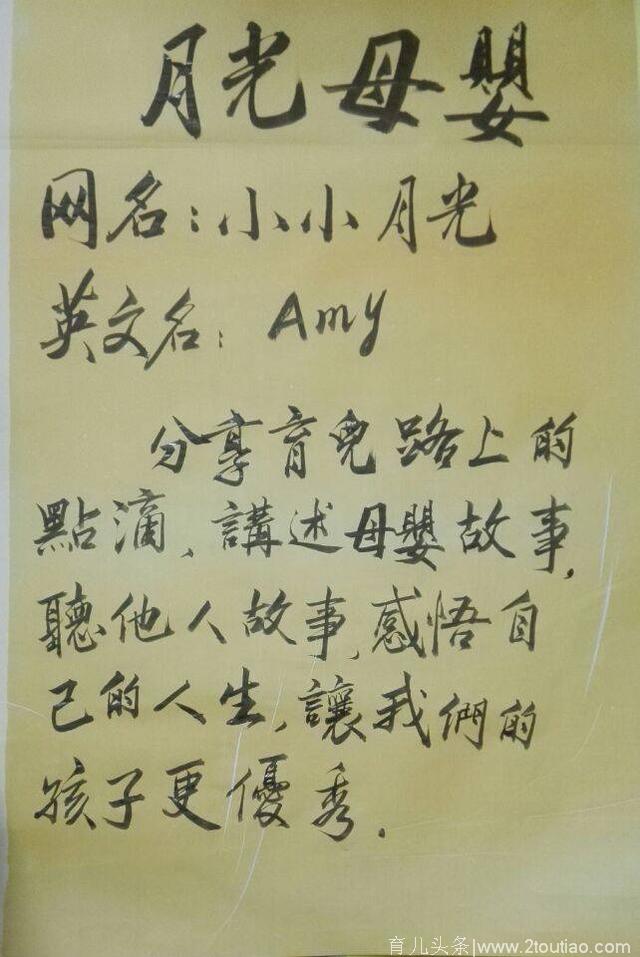 月光母嬰
网名：小小月光
英文名：Amy
分享育兒路上的
點滴、講述母嬰故事，
聽他人故事，感悟自
己的人生，讓我們的
孩子更優秀．
育儿头条|www.2toutiao.com